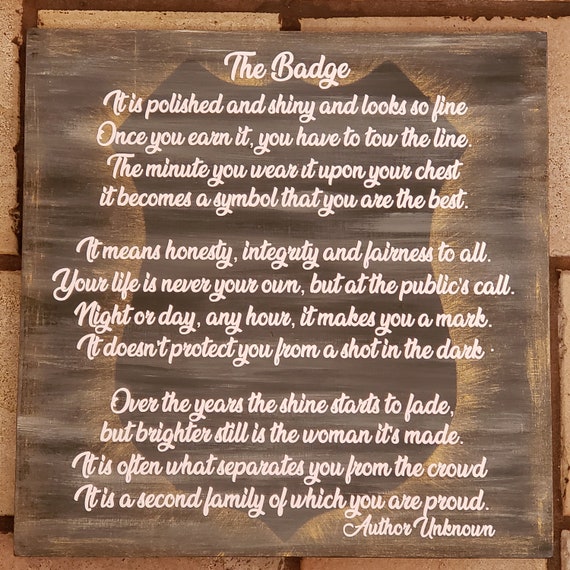 The Badge
It is polished and shiny and looks so fine
Once you earn it, you have to tow the line.
The minute you wear it upon your chest
it becomes a symbol that you are the best.
It means honesty, integrity and fairness to all.
Your life is never your own, but at the public's call.
Night or day, any hour, it makes you a mark.
It doesn't protect you from a shot in the dark.
Over the years the shine starts to fade,
but brighter still is the woman it's made.
It is often what separates you from the crowd
It is a second family of which you are proud.
Author Unknown